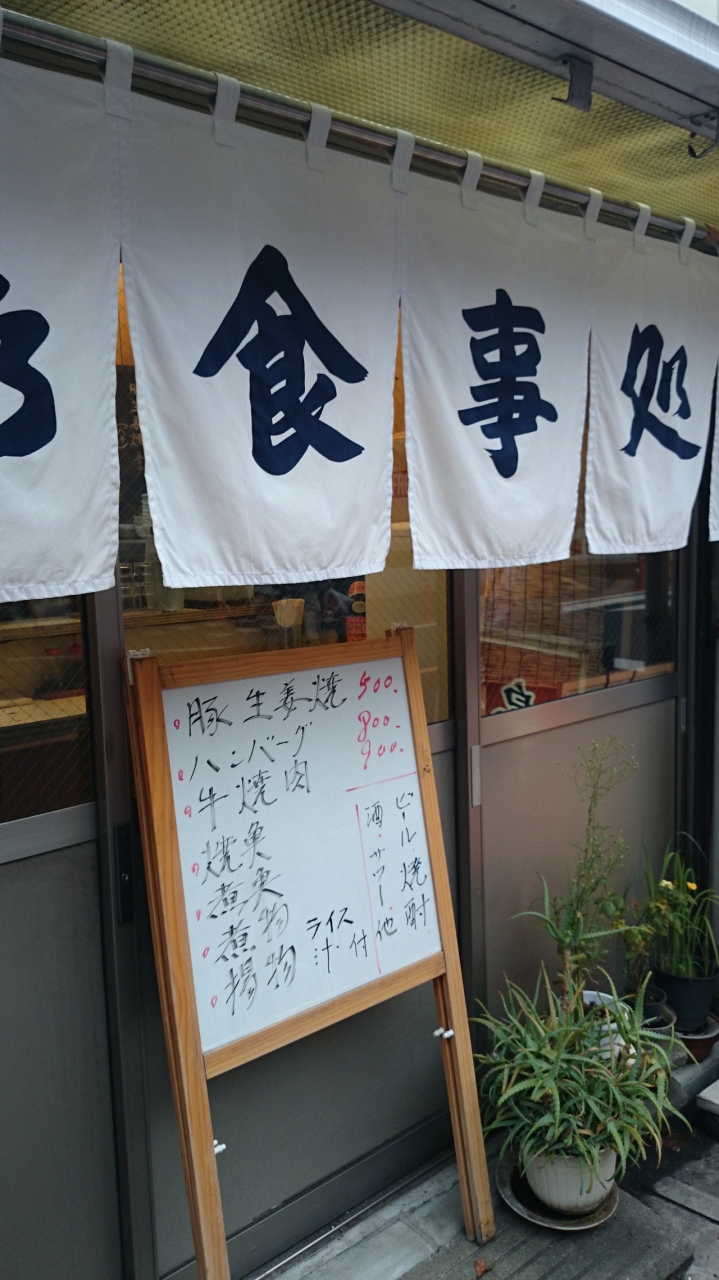 食事処
豚生姜焼 500.
ハンバーグ 800.
牛焼肉 900.
焼魚
煮魚
煮物
揚物
ライス
汁.付
ビール.焼酎
酒.サワー他